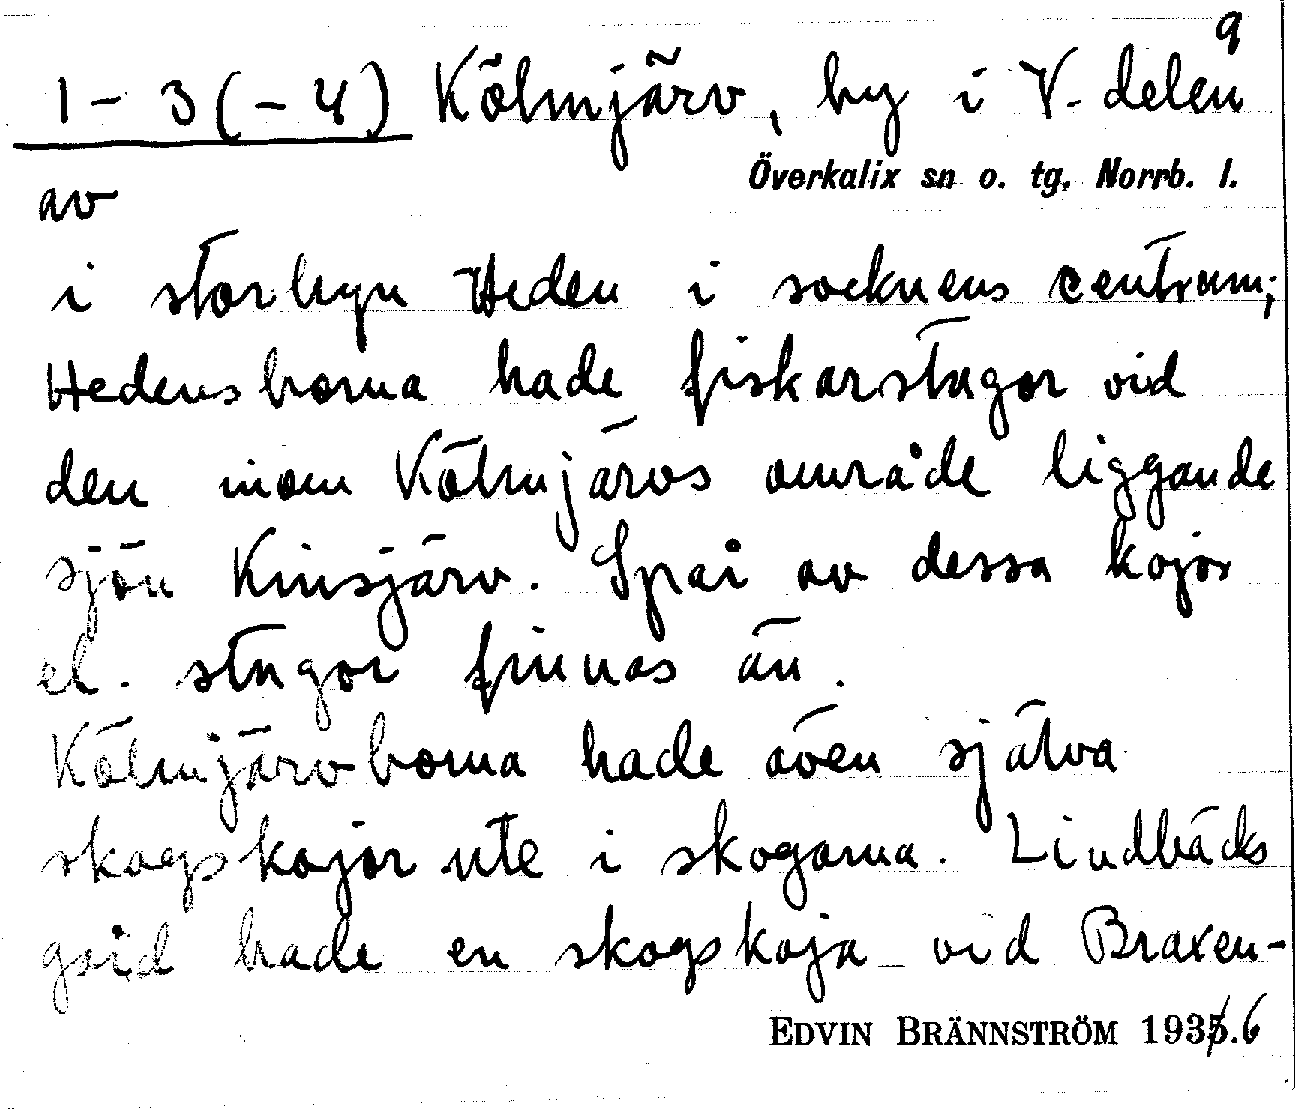 9
1-3(-4) Kölmjärv, by i V. delen
Överkalix sn o. tg, Norrb. l.
av
i storbyn Heden i socknens centrum;
Hedensborna hade fiskarstugor vid
den inom Kölmjärvs område liggande
sjön Kinsjärv. Spår av dessa kojor
el. stugor finnas än.
Kölmjärvborna hade även själva
skogskojor ute i skogarna. Lindbäcks
gård hade en skogskoja vid Braxen-
EDVIN BRÄNNSTRÖM 1935.6